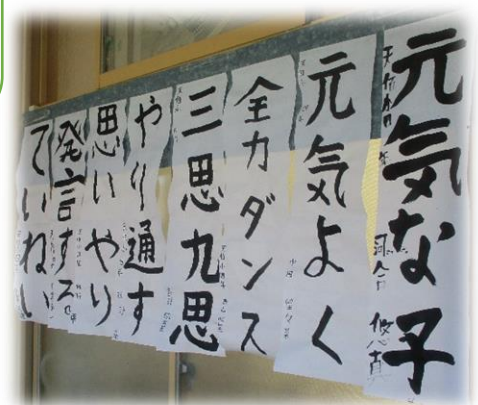 元気な子
元気よく
全力ダンス
三思九思
やり通す
思いやり
発言する
ていねい